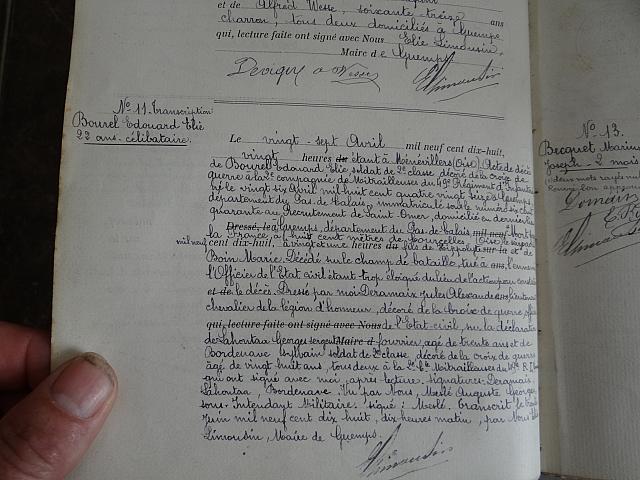 et de Alfred Wesse, soixante treize ans
charron, tous deux domiciliés à Guemps
qui, lecture faite ont signé avec Nous Elie Limousin,
Maire de Guemps
Devigne A Wesse Limousin
N° 11. Transcription
Bourel Edouard Elie
22 ans. célibataire.
Le vingt-sept Avril mil neuf cent dix-huit,
vingt heures de étant à Ménévillers (Oise) Acte de décès
de Bourel Edouard Elie soldat de 2e classe, décoré de la croix de
guerre à la 2e compagnie de Mitrailleuses du 49e Régiment d'Infanterie
né le vingt six Avril mil huit cent quatre vingt seize à Guemps,
département du Pas de Calais, immatriculé sous le numéro six cent
quarante au Recrutement de Saint-Omer, domicilié en dernier lieu
Dressé, le à Guemps, département du Pas de Calais mil neuf Mort pour
la France, à huit cent mètres de Courcelles (Oise), le
mil neuf cent dix-huit, à vingt et une heures du fils de Hippolyte sur la et de
Bain Marie. Décédé sur le champ de bataille, tué à ans, l'ennemi
L'Officier de l'Etat civil étant trop éloigné du lieu de l'action pour constater
et de le décès. Dressé par moi Deramaix Jules Alexandre ans, lieutenant
chevalier de la légion d'honneur, décoré de la croix de guerre,
qui, lecture faite ont signé avec Nous de l'Etat-civil, sur la déclaration
de Lahontaa Georges sergent Maire d fourrier, agé de trente ans et de
Bordenave Sylvain soldat de 2e classe, décoré de la croix de guerre
agé de vingt huit ans, tous deux à la 2e Cie Mitrailleuses du 49e R. I.
qui ont signé avec moi, après lecture. Signatures: Deramaix
Lahontaa, Bordenave. Vu par Nous, Meslé Auguste Georges
sous-Intendant Militaire. signé: Meslé. transcrit le
Juin mil neuf cent dix huit, dix heures matin, par Nous Elie
Limousin, Maire de Guemps.
Limousin
N° 13.
Becquet Marius
Joseph - 2 mois
deux mots rayés nuls
Lemaire
Limousin